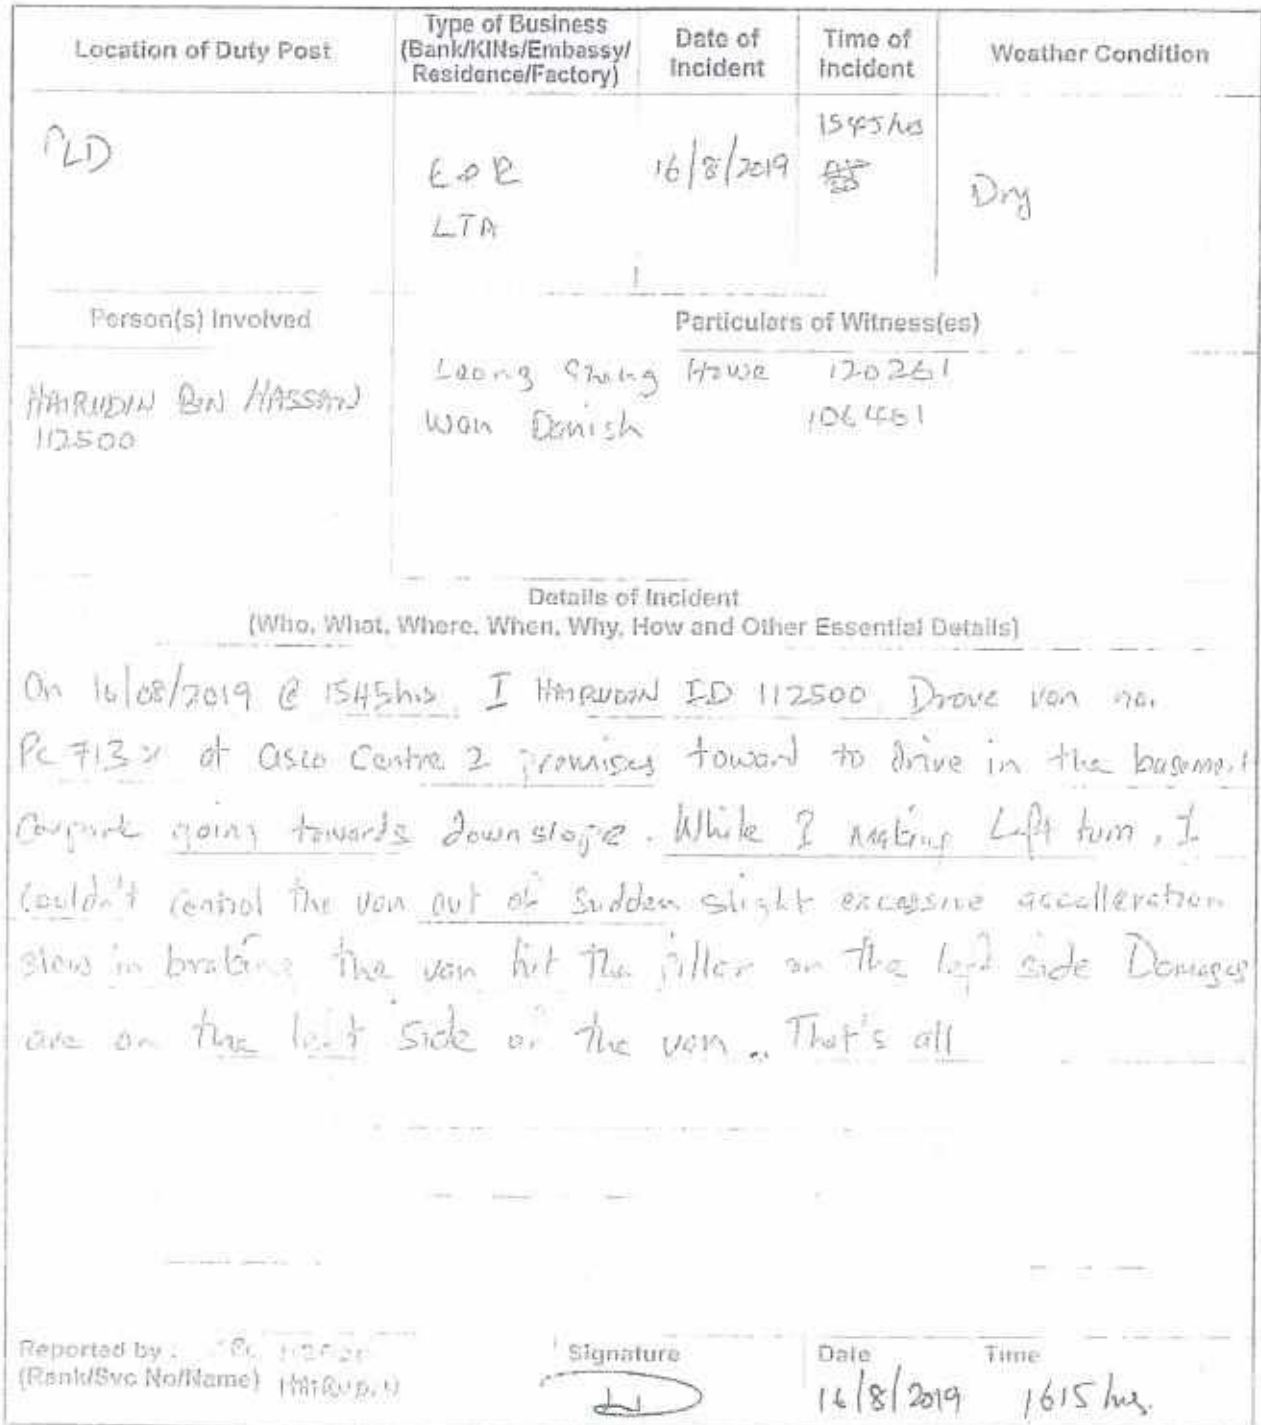 Location of Duty Post
Type of Business
(Bank/KINs/Embassy/
Residence/Factory)
Date of
Incident
Time of
Incident
Weather Condition
PLD
LTA
16/8/2019
1545hrs
Dry
Person(s) Involved
Particulars of Witness(es)
HAIRUDIN BIN HASSAN
112500
Leong Howe 120261
Wan Danish
Details of Incident
(Who, What, Where, When, Why, How and Other Essential Details)
On 16/08/2019 @ 1545hrs I HAIRUDIN ID 112500 Drove van no.
at Centre 2 premises toward to drive in the basement
Carpark going towards downslope. While I making Left turn, I
Couldn't control the van out of Sudden slight excessive accelleration
slow in braking the van hit the piller on the left side Damages
are on the left side of the van .. That's all
Reported by :
(Rank/Svc No/Name) HAIRUDIN
Signature
Date
Time
16/8/2019 1615 hrs.